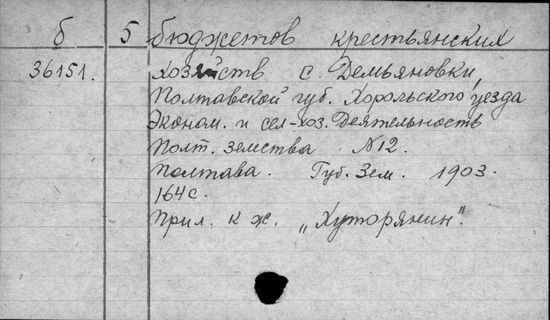 б 5 бюджетов крестьянских
36151. хозяйств с. Демьяновки,
Полтавской губ. Хорольского уезда
Эконом. и сел-хоз. Деятельность
Полт. земства № 12.
Полтава. Губ. Зем. 1903.
164 с.
Прил. к ж. „Хуторянин".